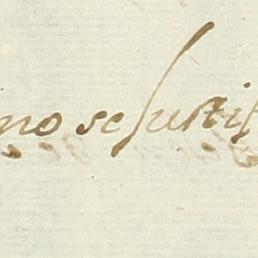 mo se Justif